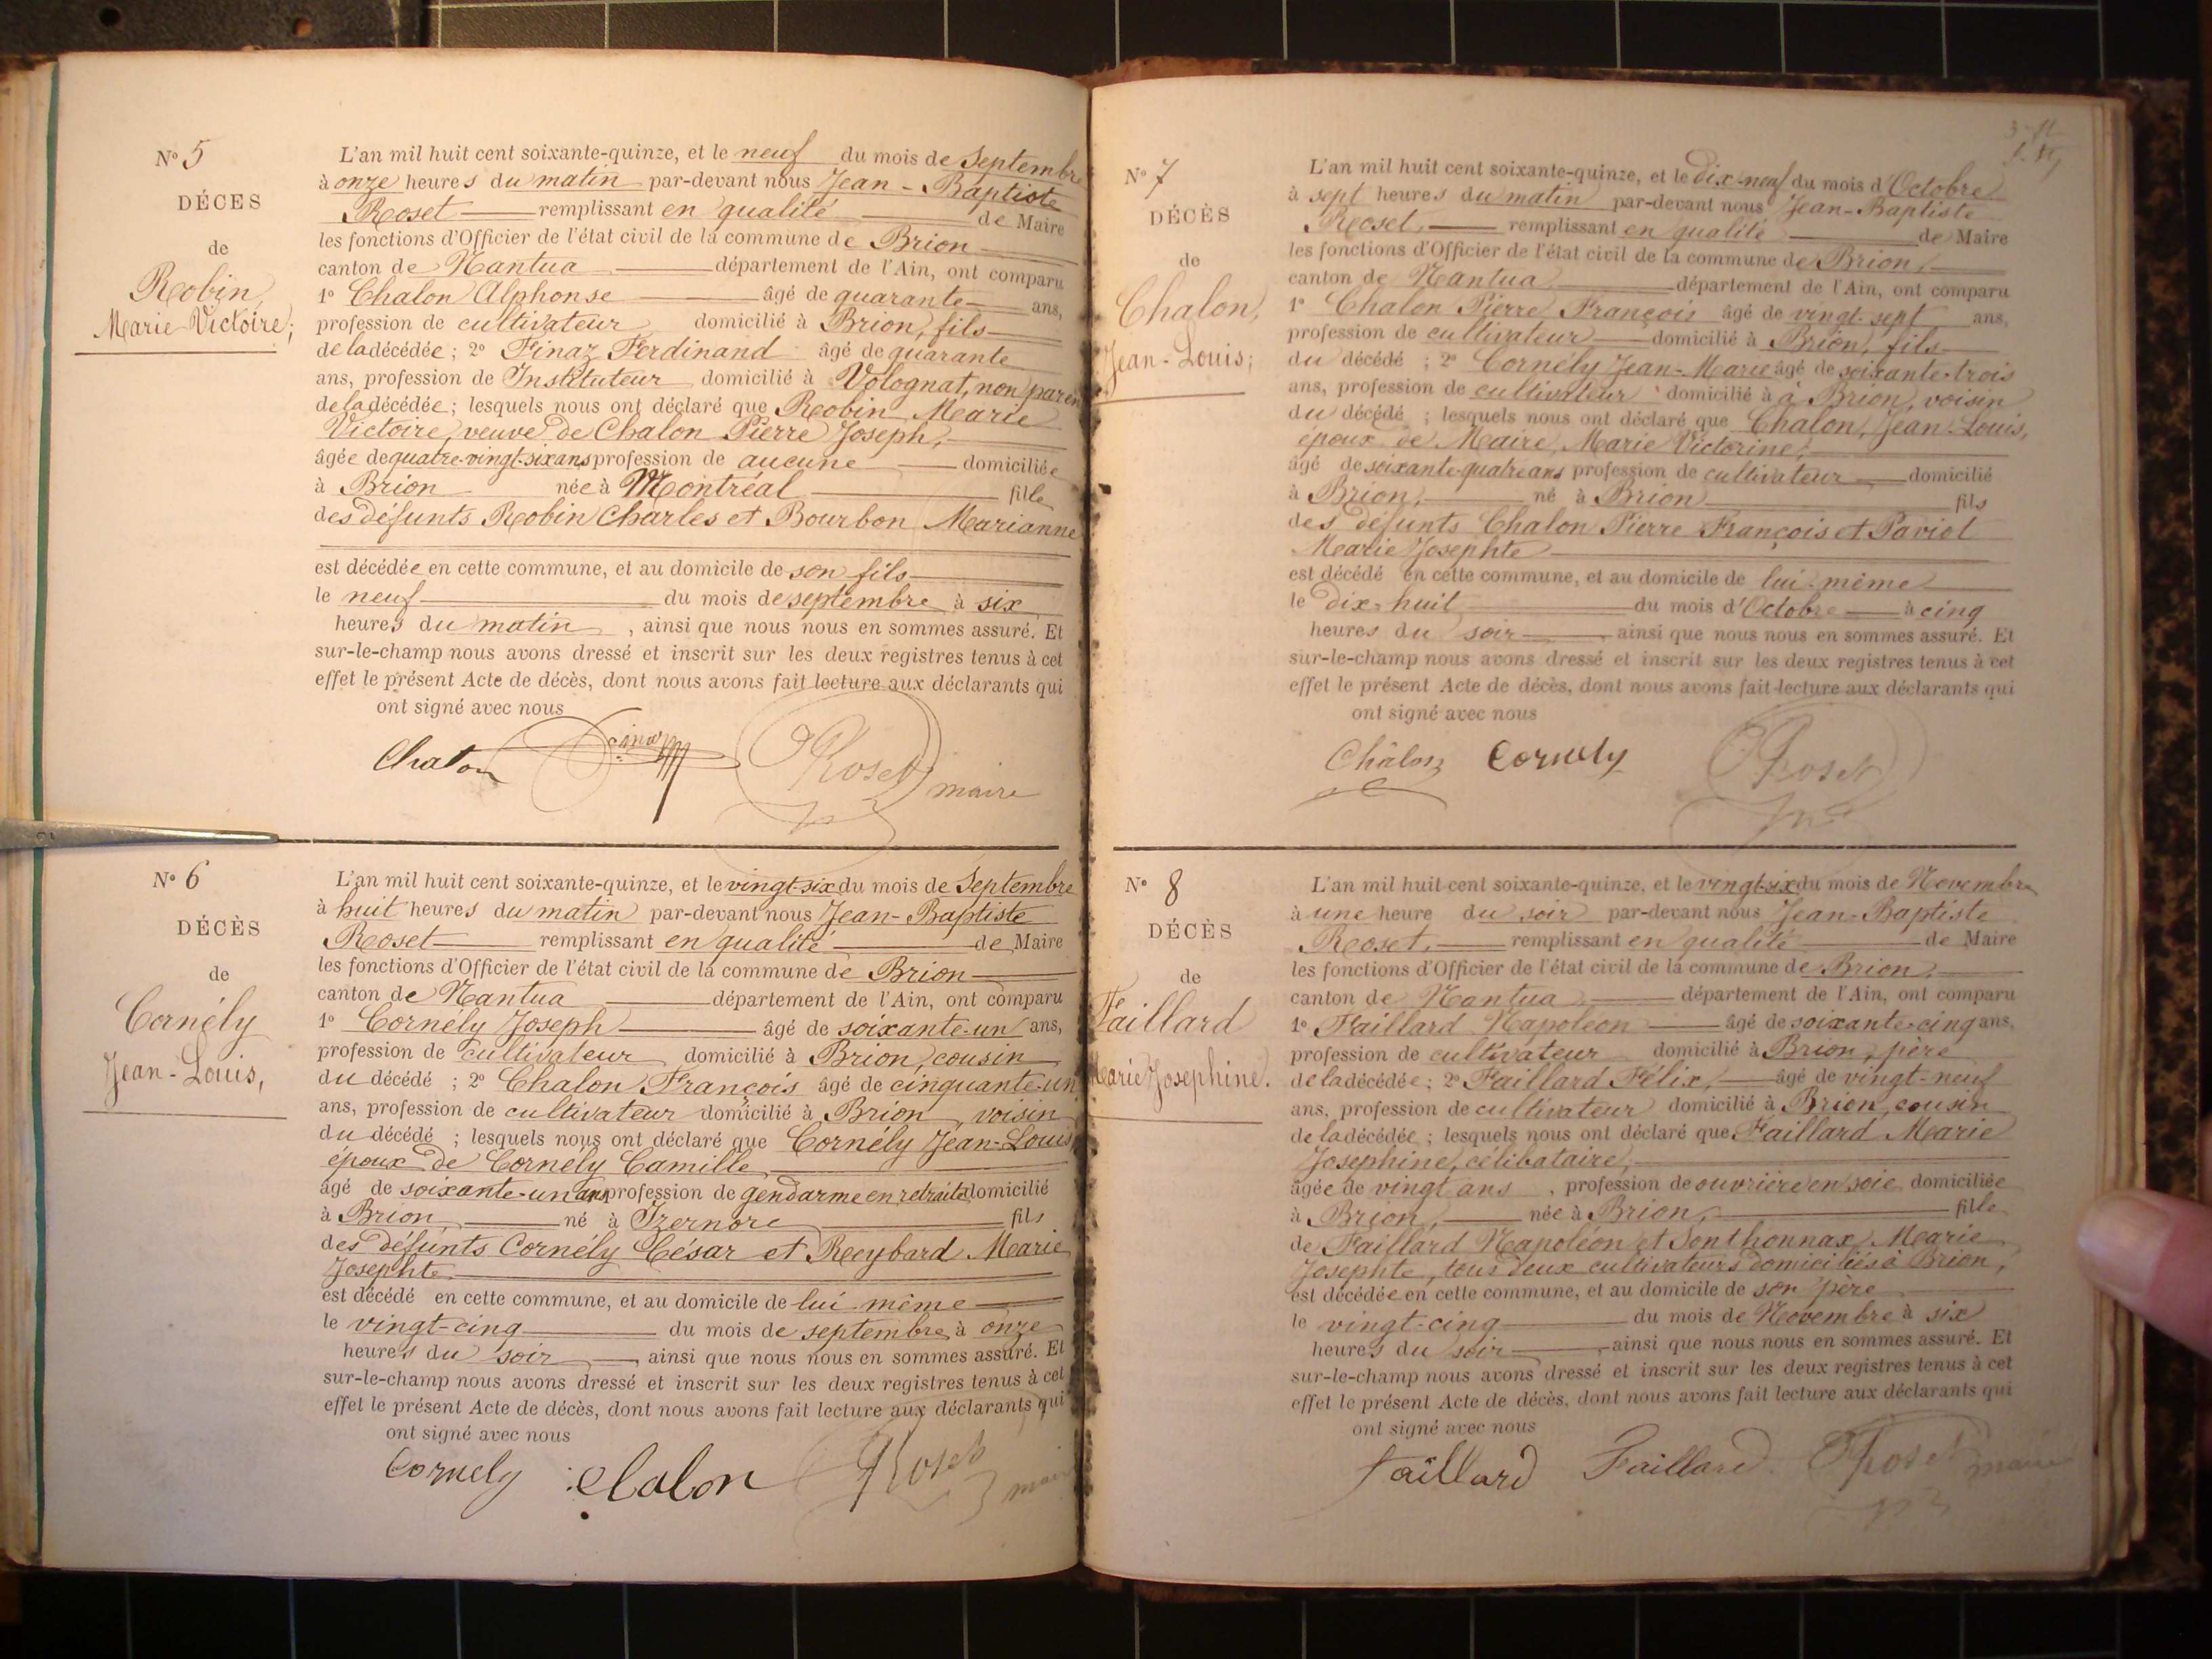 N° 5
DÉCES
de
Robin,
Marie Victoire;
L'an mil huit cent soixante-quinze, et le neuf du mois de Septembre
à onze heures du matin par-devant nous Jean-Baptiste
Roset remplissant en qualité de Maire
les fonctions d'Officier de l'état civil de la commune de Brion
canton de Nantua département de l'Ain, ont comparu
1° Chalon Alphonse âgé de quarante ans,
profession de cultivateur domicilié à Brion, fils
de la décédée; 2° Finaz Ferdinand âgé de quarante
ans, profession de Instituteur domicilié à Volognat, non parent
de la décédée; lesquels nous ont déclaré que Robin Marie
Victoire, veuve de Chalon Pierre Joseph,
âgée de quatre-vingt-six ans profession de aucune domiciliée
à Brion née à Montréal fille
des défunts Robin Charles et Bourbon Marianne
est décédée en cette commune, et au domicile de son fils
le neuf du mois de septembre à six
heures du matin, ainsi que nous nous en sommes assuré. Et
sur-le-champ nous avons dressé et inscrit sur les deux registres tenus à cet
effet le présent Acte de décès, dont nous avons fait lecture aux déclarants qui
ont signé avec nous
Chalon Finaz Roset maire
N° 6
DÉCÈS
de
Cornély
Jean-Louis,
L'an mil huit cent soixante-quinze, et le vingt-six du mois de Septembre
à huit heures du matin par-devant nous Jean-Baptiste
Roset remplissant en qualité de Maire
les fonctions d'Officier de l'état civil de la commune de Brion
canton de Nantua département de l'Ain, ont comparu
1° Cornély Joseph âgé de soixante-un ans,
profession de cultivateur domicilié à Brion, cousin
du décédé; 2° Chalon François âgé de cinquante-un
ans, profession de cultivateur domicilié à Brion, voisin
du décédé; lesquels nous ont déclaré que Cornély Jean-Louis
époux de Cornély Camille
âgé de soixante-un ans profession de gendarme en retraite domicilié
à Brion, né à Izernore fils
des défunts Cornély César et Reybard Marie
Josephte
est décédé en cette commune, et au domicile de lui-même
le vingt-cinq du mois de septembre à onze
heures du soir, ainsi que nous nous en sommes assuré. Et
sur-le-champ nous avons dressé et inscrit sur les deux registres tenus à cet
effet le présent Acte de décès, dont nous avons fait lecture aux déclarants qui
ont signé avec nous
Cornely Chalon Roset maire
N° 7
DÉCÈS
de
Chalon,
Jean-Louis;
L'an mil huit cent soixante-quinze, et le dix-neuf du mois d'Octobre
à sept heures du matin par-devant nous Jean-Baptiste
Roset, remplissant en qualité de Maire
les fonctions d'Officier de l'état civil de la commune de Brion,
canton de Nantua département de l'Ain, ont comparu
1° Chalon Pierre François âgé de vingt-sept ans,
profession de cultivateur domicilié à Brion, fils
du décédé; 2° Cornély Jean-Marie âgé de soixante-trois
ans, profession de cultivateur domicilié à à Brion, voisin
du décédé; lesquels nous ont déclaré que Chalon, Jean-Louis,
époux de Maire, Marie Victorine;
âgé de soixante-quatre ans profession de cultivateur domicilié
à Brion, né à Brion fils
des défunts Chalon Pierre François et Pariot
Marie Josephte
est décédé en cette commune, et au domicile de lui-même
le dix-huit du mois d'Octobre à cinq
heures du soir, ainsi que nous nous en sommes assuré. Et
sur-le-champ nous avons dressé et inscrit sur les deux registres tenus à cet
effet le présent Acte de décès, dont nous avons fait lecture aux déclarants qui
ont signé avec nous
Châlon Cornely Roset
N° 8
DÉCÈS
de
Faillard
Marie Josephine.
L'an mil huit cent soixante-quinze, et le vingt-six du mois de Novembre
à une heure du soir par-devant nous Jean-Baptiste
Roset, remplissant en qualité de Maire
les fonctions d'Officier de l'état civil de la commune de Brion,
canton de Nantua département de l'Ain, ont comparu
1° Faillard Napoléon âgé de soixante-cinq ans,
profession de cultivateur domicilié à Brion, père
de la décédée; 2° Faillard Félix, âgé de vingt-neuf
ans, profession de cultivateur domicilié à Brion, cousin
de la décédée; lesquels nous ont déclaré que Faillard Marie
Josephine, célibataire,
âgée de vingt ans, profession de ouvrière en soie domiciliée
à Brion, née à Brion, fille
de Faillard Napoléon et Sonthonnax Marie
Josephte, tous deux cultivateurs domiciliés à Brion,
est décédée en cette commune, et au domicile de son père
le vingt-cinq du mois de Novembre à six
heures du soir, ainsi que nous nous en sommes assuré. Et
sur-le-champ nous avons dressé et inscrit sur les deux registres tenus à cet
effet le présent Acte de décès, dont nous avons fait lecture aux déclarants qui
ont signé avec nous
Faillard Faillard Roset maire